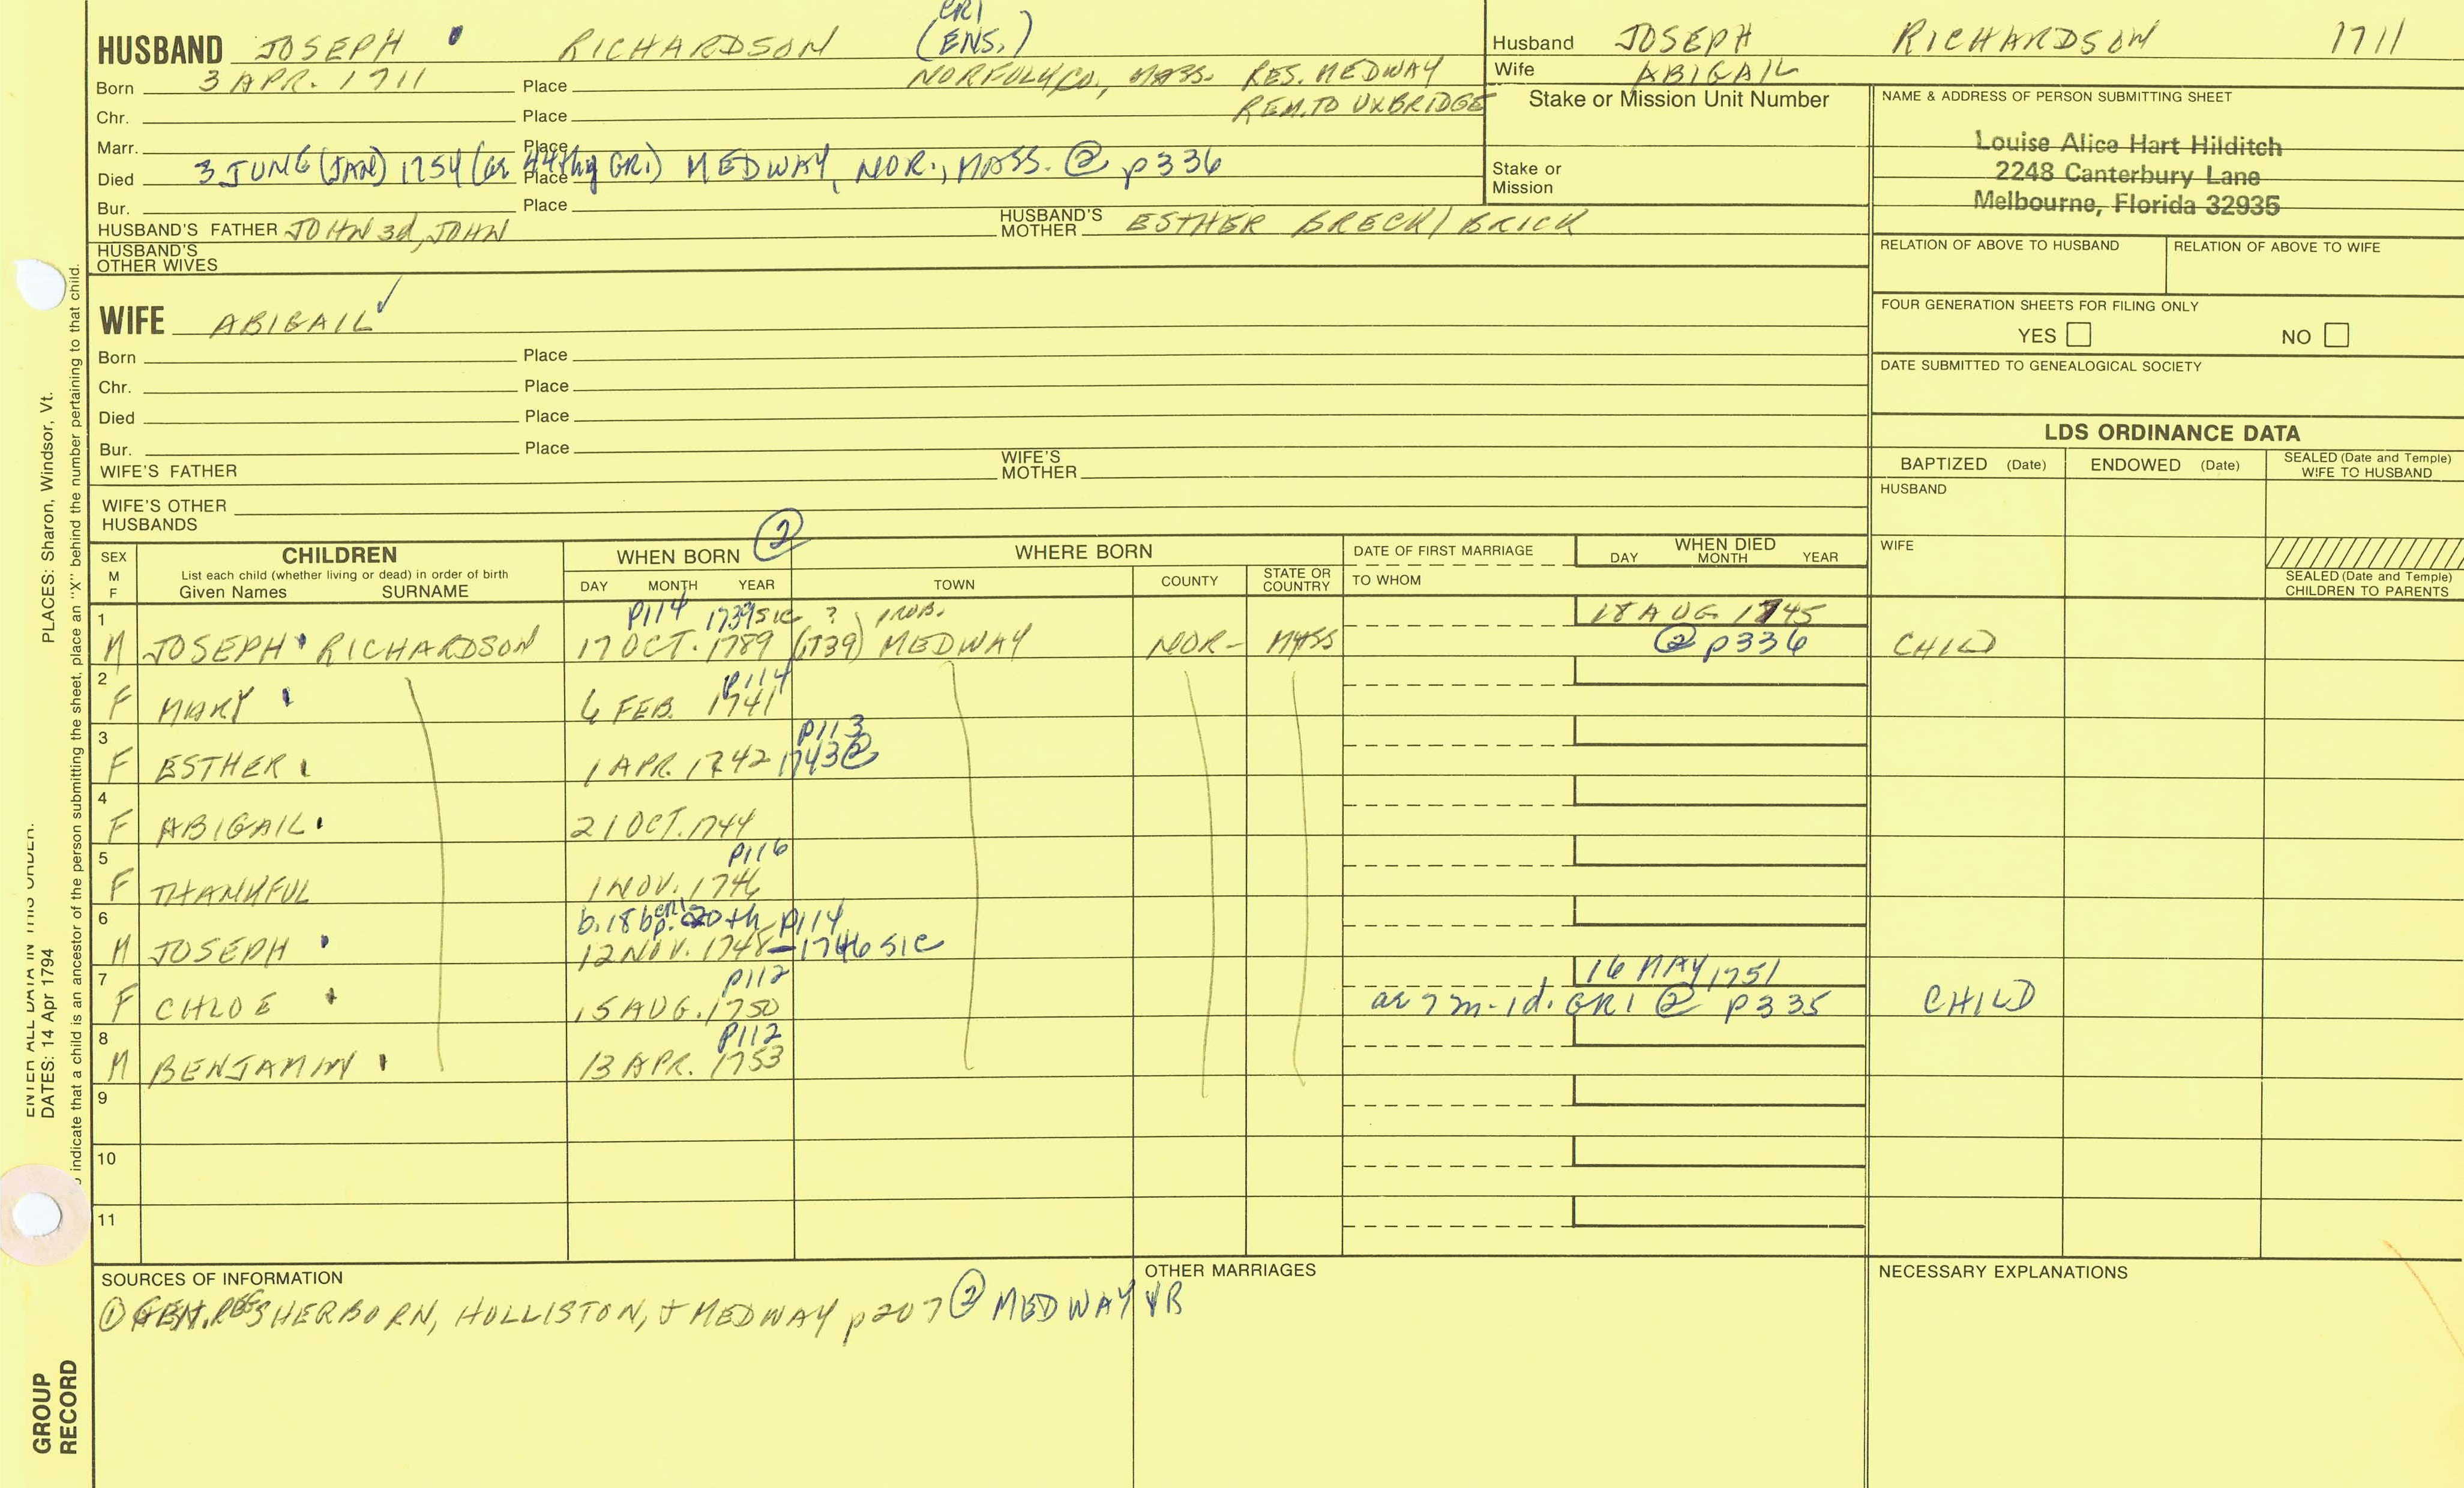 HUSBAND JOSEPH RICHARDSON GR1 (ENS.)
Born 3 APR. 1711 Place NORFOLK CO., MASS. RES. MEDWAY
Chr. Place REM. TO UXBRIDGE
Marr. Place
Died 3 JUNE (JAN) 1754 (as 44thy GR1) Place MEDWAY, NOR., MASS. ② p336
Bur. Place
HUSBAND'S FATHER JOHN 3d, JOHN HUSBAND'S MOTHER ESTHER BRECK/BRICK
HUSBAND'S OTHER WIVES
WIFE ABIGAIL ✓
Born Place
Chr. Place
Died Place
Bur. Place
WIFE'S FATHER WIFE'S MOTHER
WIFE'S OTHER HUSBANDS
Husband JOSEPH RICHARDSON 1711
Wife ABIGAIL
Stake or Mission Unit Number
Stake or Mission
NAME & ADDRESS OF PERSON SUBMITTING SHEET
Louise Alice Hart Hilditch
2248 Canterbury Lane
Melbourne, Florida 32935
RELATION OF ABOVE TO HUSBAND RELATION OF ABOVE TO WIFE
FOUR GENERATION SHEETS FOR FILING ONLY
YES NO
DATE SUBMITTED TO GENEALOGICAL SOCIETY
LDS ORDINANCE DATA
BAPTIZED (Date) ENDOWED (Date) SEALED (Date and Temple) WIFE TO HUSBAND
HUSBAND
WIFE
SEALED (Date and Temple) CHILDREN TO PARENTS
SEX M F
CHILDREN
List each child (whether living or dead) in order of birth
Given Names SURNAME
WHEN BORN ②
DAY MONTH YEAR
WHERE BORN
TOWN COUNTY STATE OR COUNTRY
DATE OF FIRST MARRIAGE
TO WHOM
WHEN DIED
DAY MONTH YEAR
1 P114 1739 SIC ? PROB. 18 AUG 1745
M JOSEPH RICHARDSON 17 OCT. 1789 (1739) MEDWAY NOR- MASS ② p336 CHILD
2 P114
F MARY 6 FEB. 1741
3 P113
F ESTHER 1 APR. 1742 1743 ②
4
F ABIGAIL 21 OCT. 1744
5 P116
F THANKFUL 1 NOV. 1746
6 b. 18 bp. GR1 20th P114
M JOSEPH 12 NOV. 1748 - 1746 SIC
7 P112 16 MAY 1751
F CHLOE 15 AUG. 1750 as 7 m-1d. GR1 ② p335 CHILD
8 P112
M BENJAMIN 13 APR. 1753
9
10
11
SOURCES OF INFORMATION
① GEN. REG SHERBORN, HOLLISTON, & MEDWAY p207 ② MEDWAY VR
OTHER MARRIAGES
NECESSARY EXPLANATIONS
PLACES: Sharon, Windsor, Vt.
ENTER ALL DATA IN THIS ORDER:
DATES: 14 Apr 1794
indicate that a child is an ancestor of the person submitting the sheet, place an "X" behind the number pertaining to that child.
GROUP
RECORD